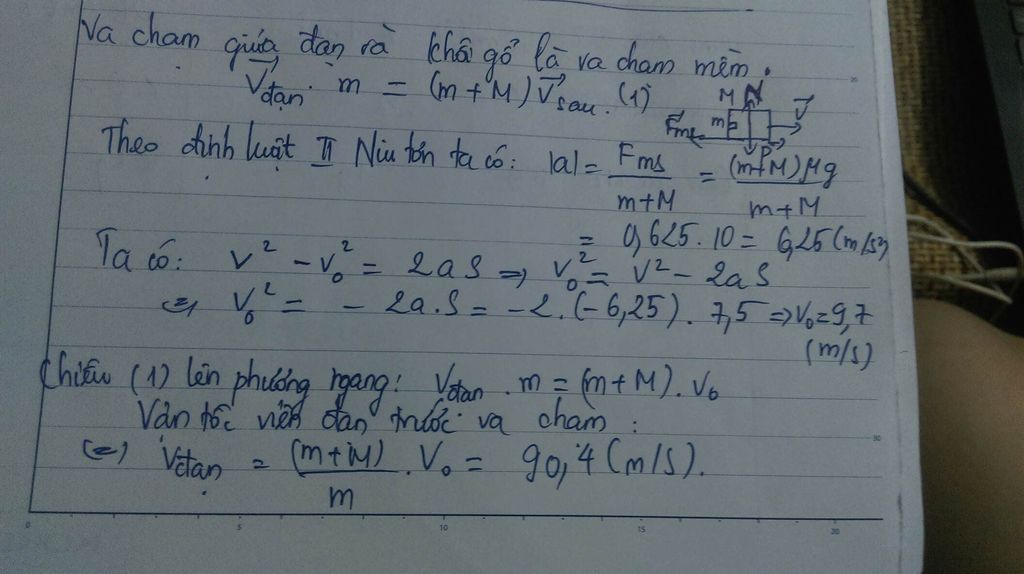 Va chạm giữa đạn và khối gỗ là va chạm mềm.
V⃗đạn . m = (m+M) V⃗sau. (1)
M N
m P V⃗
Fms
Theo định luật II Niu tơn ta có: |a| = Fms / (m+M) = (m+M)μg / (m+M)
= 0,625 . 10 = 6,25 (m/s²)
Ta có: v² - v₀² = 2aS => v₀² = v² - 2aS
<=> v₀² = - 2a.S = -2.(-6,25). 7,5 => v₀ = 9,7
(m/s)
Chiếu (1) lên phương ngang: Vđạn . m = (m+M). V₀
Vận tốc viên đạn trước va chạm :
(=) Vđạn = (m+M) / m . V₀ = 90,4 (m/s).
0 5 10 15 20